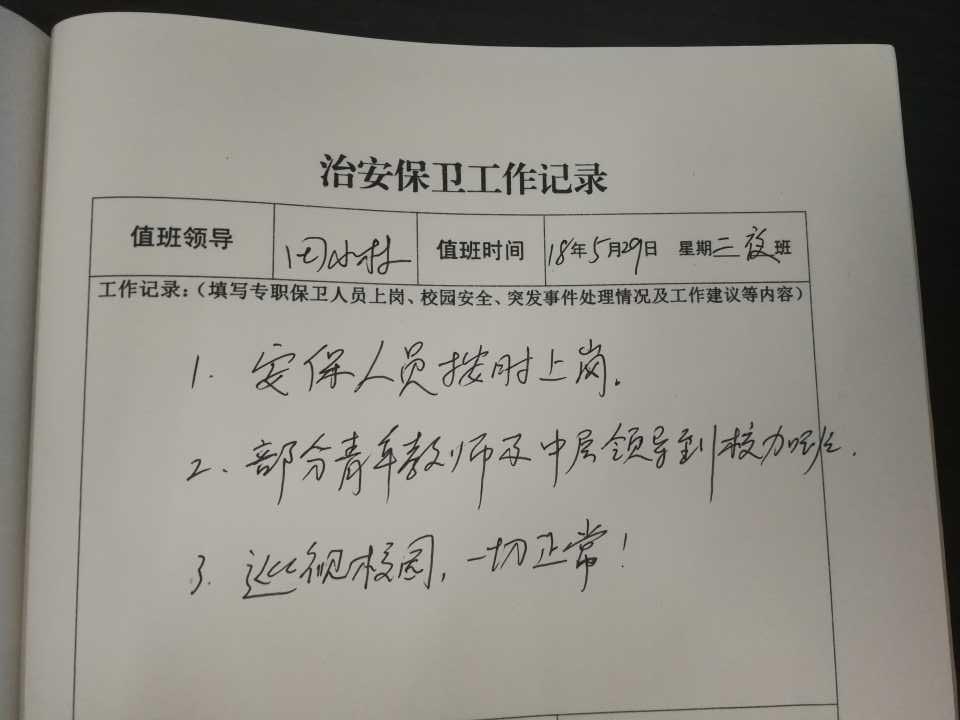 治安保卫工作记录
值班领导 田小林 值班时间 18年5月29日 星期二夜班
工作记录:(填写专职保卫人员上岗、校园安全、突发事件处理情况及工作建议等内容)
1. 安保人员按时上岗。
2、部分青年教师及中层领导到校加班.
3. 巡视校园,一切正常!